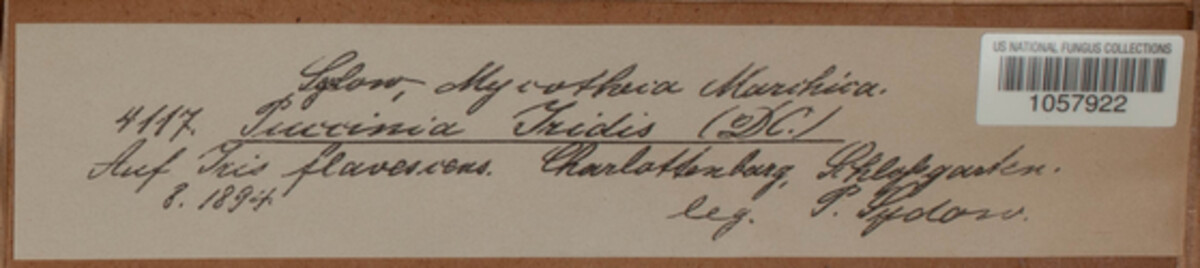 Sydow, Mycotheca Marchica.
4117. Puccinia Iridis (DC.)
Auf Iris flavescens. Charlottenburg, Schloßgarten.
8. 1894.
leg. P. Sydow.
US NATIONAL FUNGUS COLLECTIONS
1057922